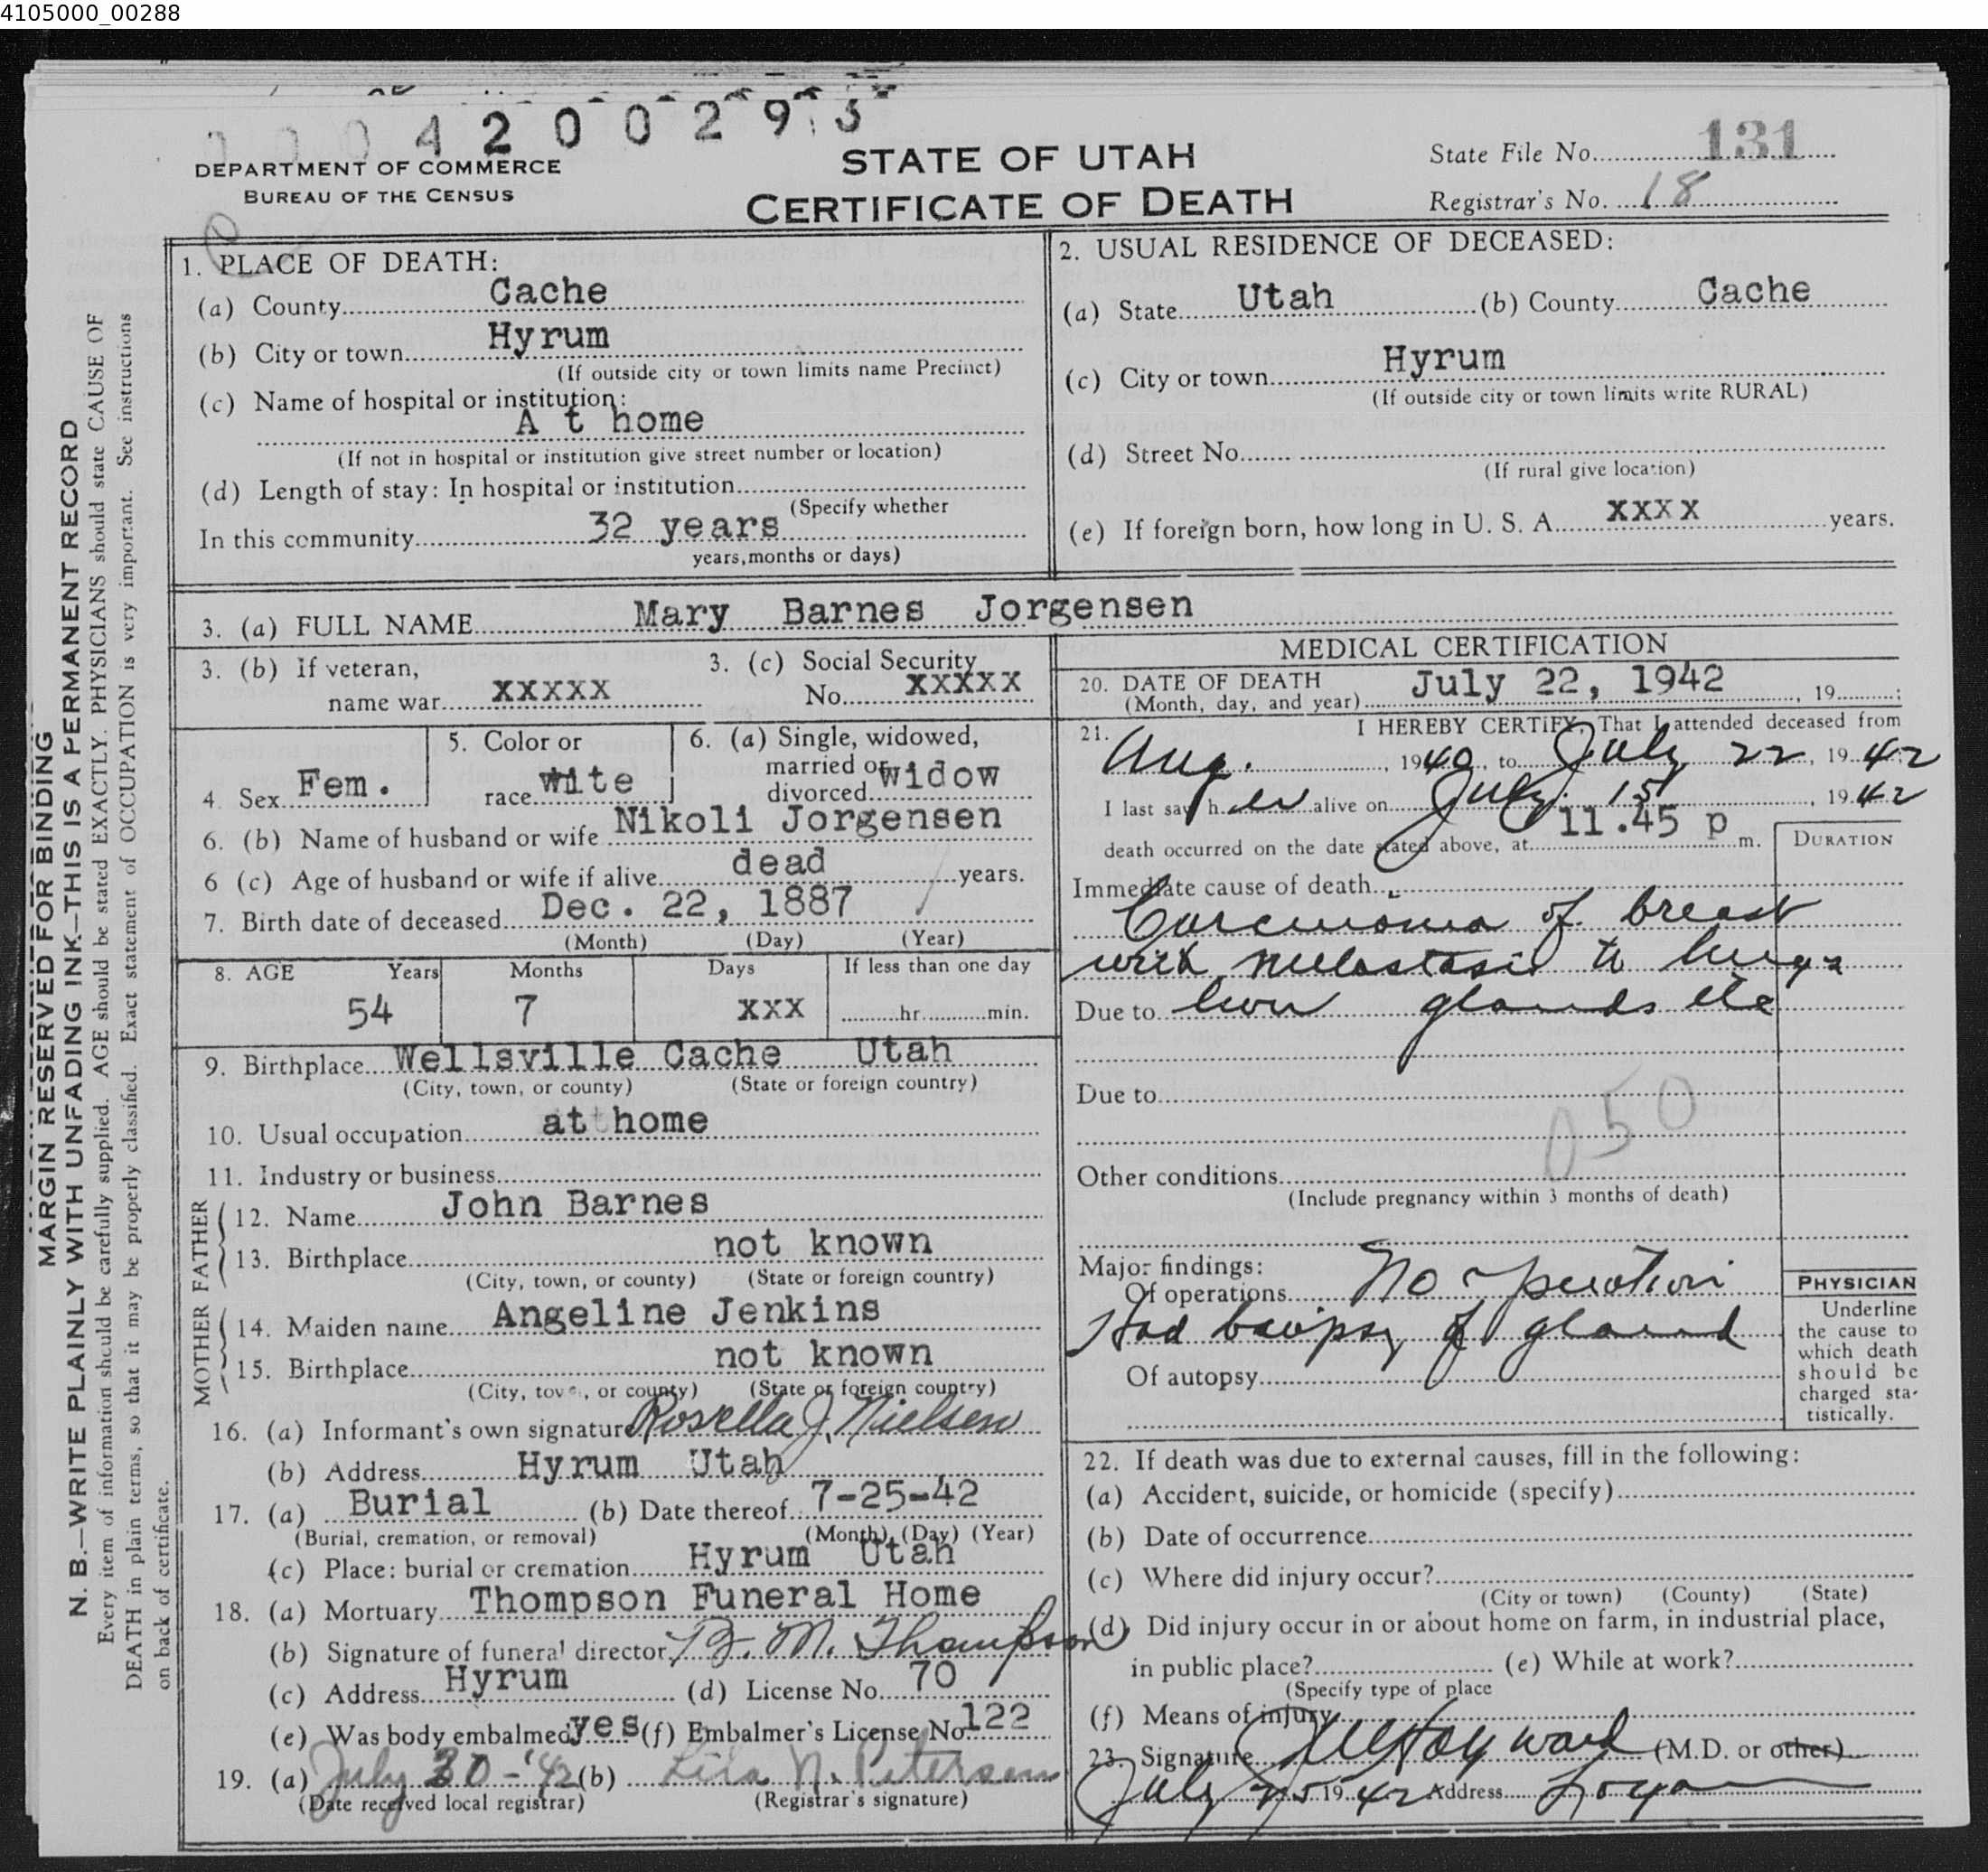 4105000_00288
4 2 0 0 2 9 3
DEPARTMENT OF COMMERCE
BUREAU OF THE CENSUS
STATE OF UTAH
CERTIFICATE OF DEATH
State File No. 131
Registrar's No. 18
MARGIN RESERVED FOR BINDING
N. B.—WRITE PLAINLY WITH UNFADING INK—THIS IS A PERMANENT RECORD
Every item of information should be carefully supplied. AGE should be stated EXACTLY. PHYSICIANS should state CAUSE OF
DEATH in plain terms, so that it may be properly classified. Exact statement of OCCUPATION is very important. See instructions
on back of certificate.
1. PLACE OF DEATH:
(a) County Cache
(b) City or town Hyrum
(If outside city or town limits name Precinct)
(c) Name of hospital or institution:
A t home
(If not in hospital or institution give street number or location)
(d) Length of stay: In hospital or institution
(Specify whether
In this community 32 years
years, months or days)
2. USUAL RESIDENCE OF DECEASED:
(a) State Utah (b) County Cache
(c) City or town Hyrum
(If outside city or town limits write RURAL)
(d) Street No.
(If rural give location)
(e) If foreign born, how long in U. S. A. XXXX years.
3. (a) FULL NAME Mary Barnes Jorgensen
3. (b) If veteran,
name war XXXXX
3. (c) Social Security
No. XXXXX
4. Sex Fem.
5. Color or
race white
6. (a) Single, widowed,
married or
divorced widow
6. (b) Name of husband or wife Nikoli Jorgensen
6 (c) Age of husband or wife if alive dead years.
7. Birth date of deceased Dec. 22, 1887
(Month) (Day) (Year)
8. AGE Years Months Days If less than one day
54 7 XXX hr. min.
9. Birthplace Wellsville Cache Utah
(City, town, or county) (State or foreign country)
10. Usual occupation at home
11. Industry or business
FATHER
12. Name John Barnes
13. Birthplace not known
(City, town, or county) (State or foreign country)
MOTHER
14. Maiden name Angeline Jenkins
15. Birthplace not known
(City, town, or county) (State or foreign country)
16. (a) Informant's own signature Rosella J. Nielsen
(b) Address Hyrum Utah
17. (a) Burial (b) Date thereof 7-25-42
(Burial, cremation, or removal) (Month) (Day) (Year)
(c) Place: burial or cremation Hyrum Utah
18. (a) Mortuary Thompson Funeral Home
(b) Signature of funeral director B. M. Thompson
(c) Address Hyrum (d) License No. 70
(e) Was body embalmed yes (f) Embalmer's License No. 122
19. (a) July 30-'42 (b) Lila N. Petersen
(Date received local registrar) (Registrar's signature)
MEDICAL CERTIFICATION
20. DATE OF DEATH
(Month, day, and year) July 22, 1942, 19 :
21. I HEREBY CERTIFY, That I attended deceased from
Aug. , 1940, to July 22, 1942
I last saw h er alive on July 15, 1942
death occurred on the date stated above, at 11.45 p m.
DURATION
Immediate cause of death
Carcinoma of breast
with metastasis to lungs
Due to liver glands etc
Due to
050
Other conditions
(Include pregnancy within 3 months of death)
Major findings:
Of operations No operation
Had biopsy of gland
Of autopsy
PHYSICIAN
Underline
the cause to
which death
should be
charged sta-
tistically.
22. If death was due to external causes, fill in the following:
(a) Accident, suicide, or homicide (specify)
(b) Date of occurrence
(c) Where did injury occur?
(City or town) (County) (State)
(d) Did injury occur in or about home on farm, in industrial place,
in public place? (e) While at work?
(Specify type of place
(f) Means of injury
23. Signature Hayward (M.D. or other)
July 25 1942 Address Logan